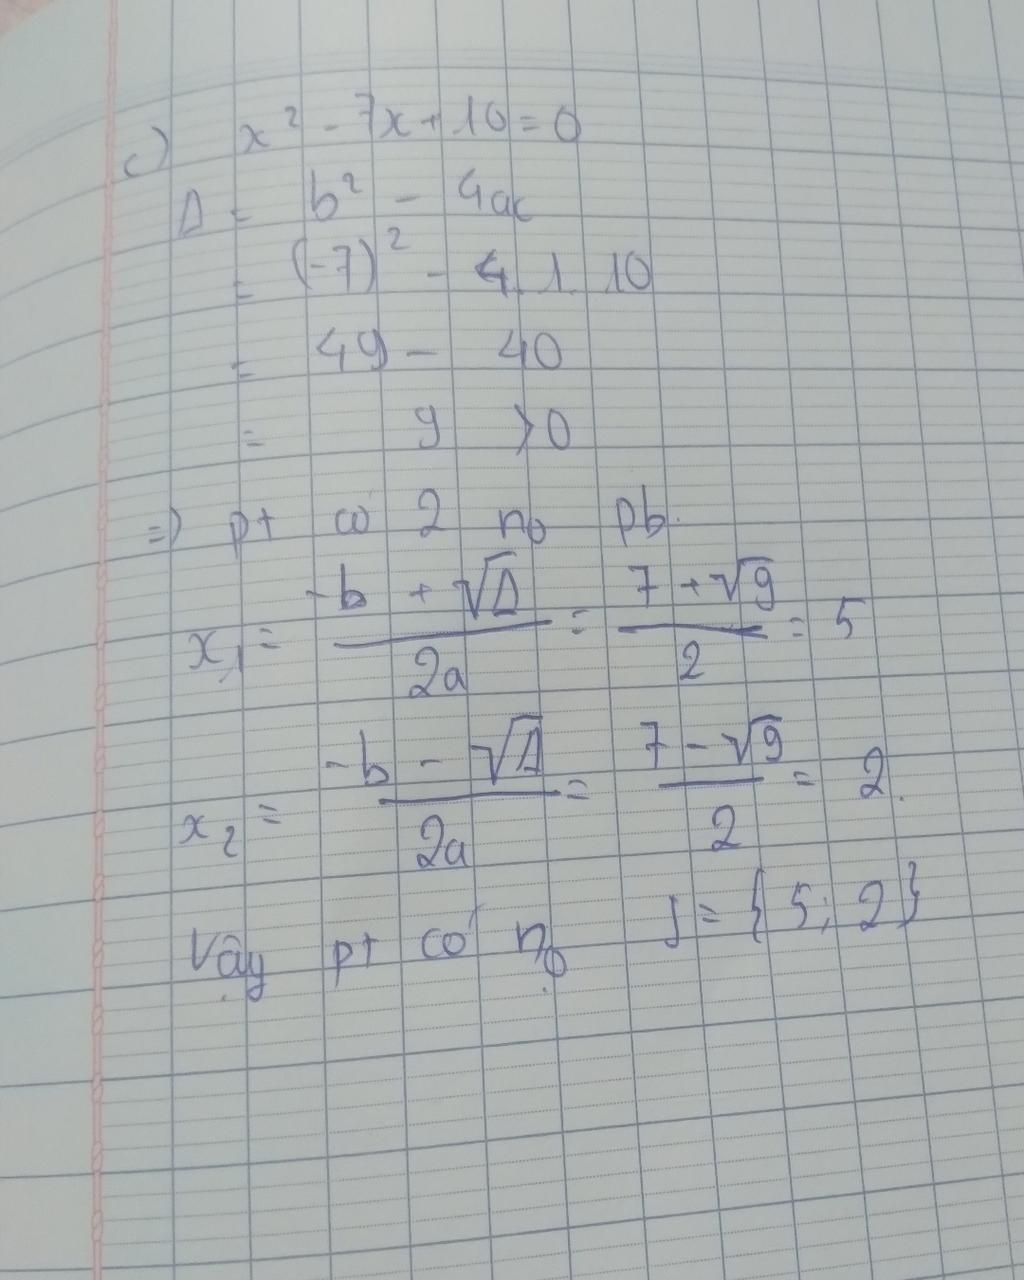 c) x² - 7x + 10 = 0
Δ = b² - 4ac
= (-7)² - 4.1.10
= 49 - 40
= 9 > 0
=) pt có 2 no pb.
x₁ = (-b + √Δ)/2a = (7 + √9)/2 = 5
x₂ = (-b - √Δ)/2a = (7 - √9)/2 = 2.
Vậy pt có nọ S = {5; 2}